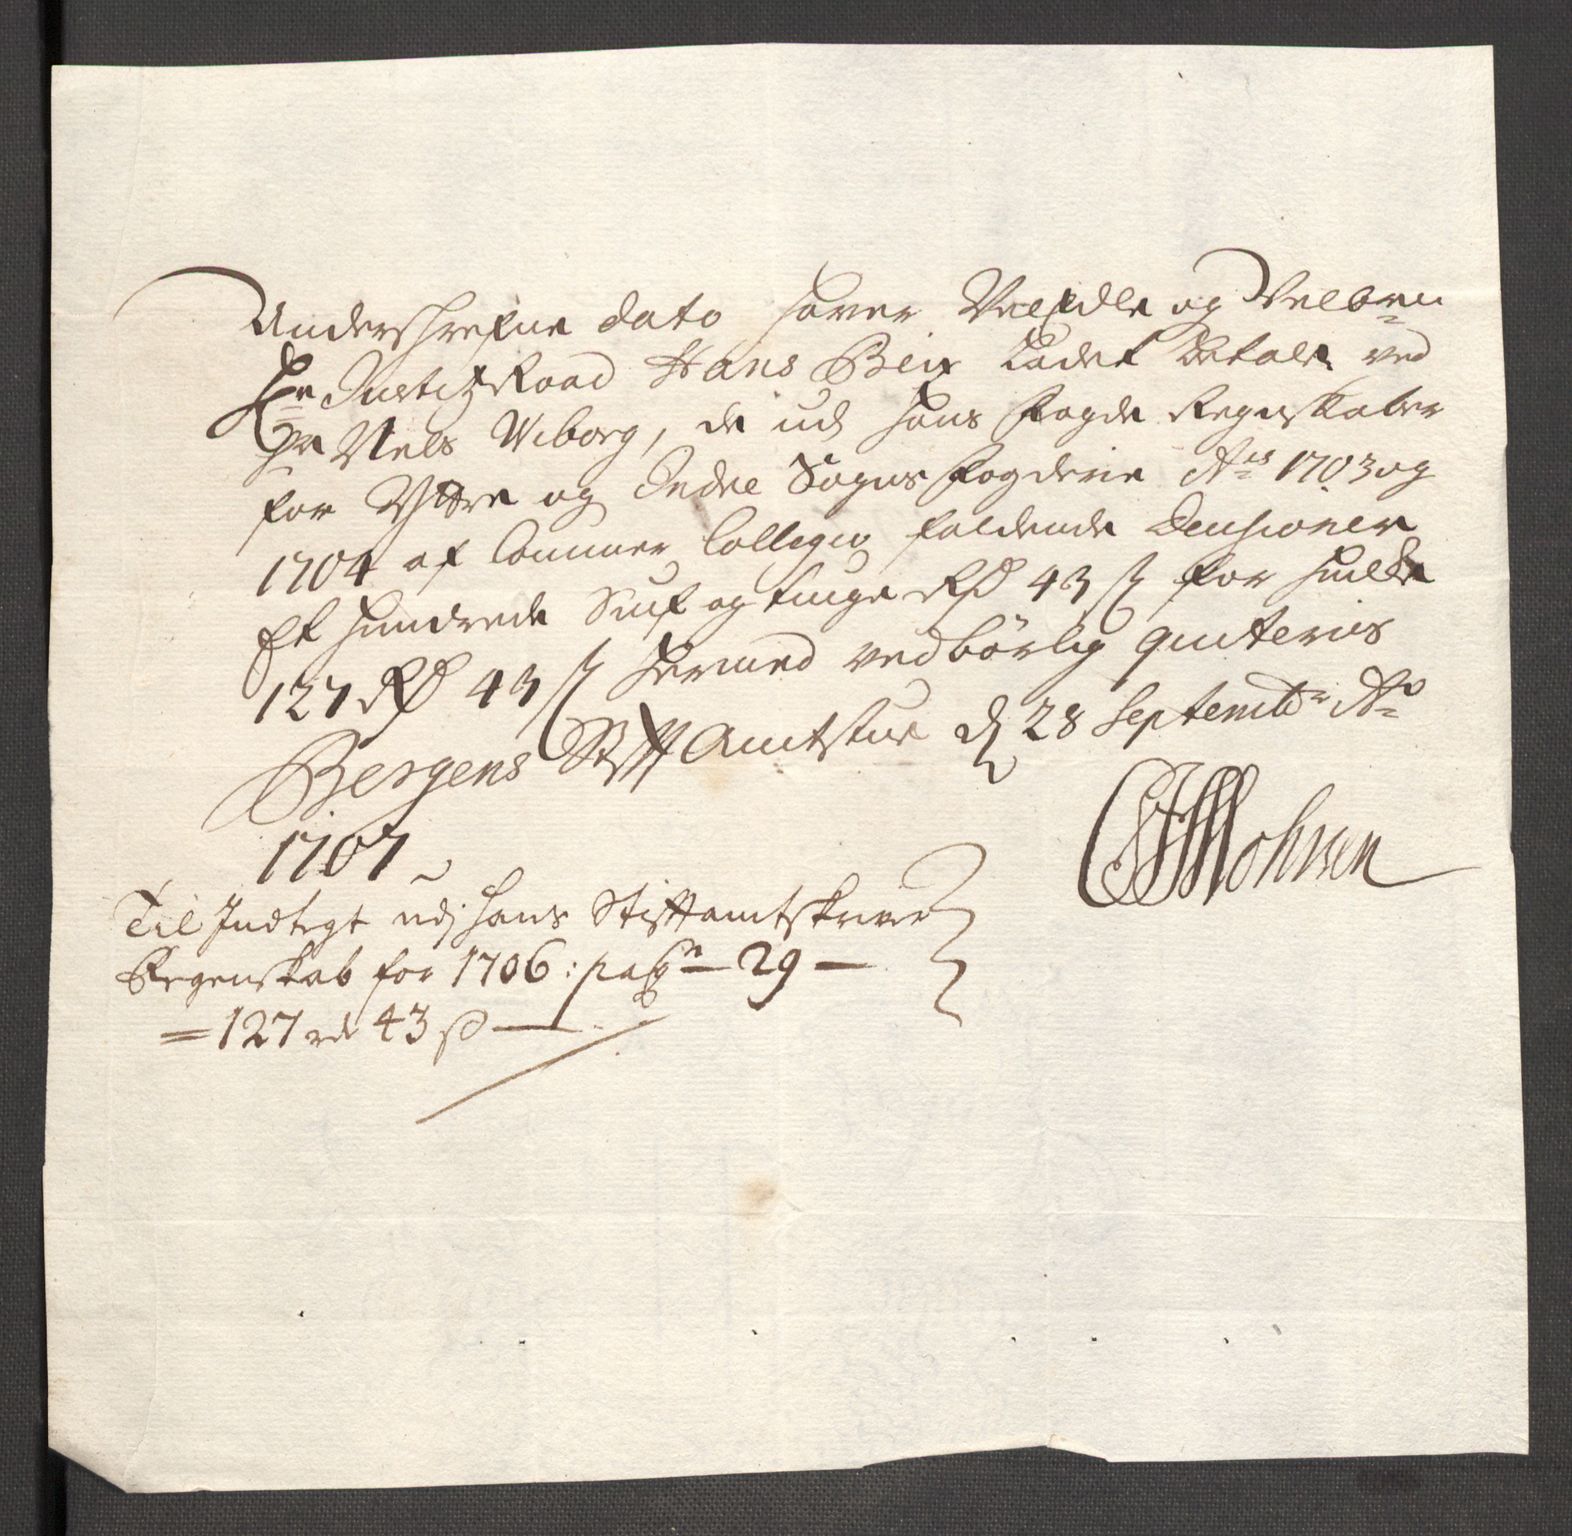 Underschrefne dato hafver VelEdle og Velb:n
Hr JustitzRaad Hans Beix Ladet betale ved
Hr Niels Wiborg, de udj hans Fogde Regenskaber
for Ytre og Indre Sogns fogderie A:is 1703 og
1704 af Cammer Collegio faldende Decisioner
Et hundrede Siuf og tiuge Rd 43 ß for huilke
127 Rd 43 ß hermed vedbörlig quiteris
Bergens Stifft Amtstue d 28 Septembr Ao
1707
Til Indtegt udj hans Stifftamtskriver
Regenskab for 1706: pag 29
= 127 rd 43 ß